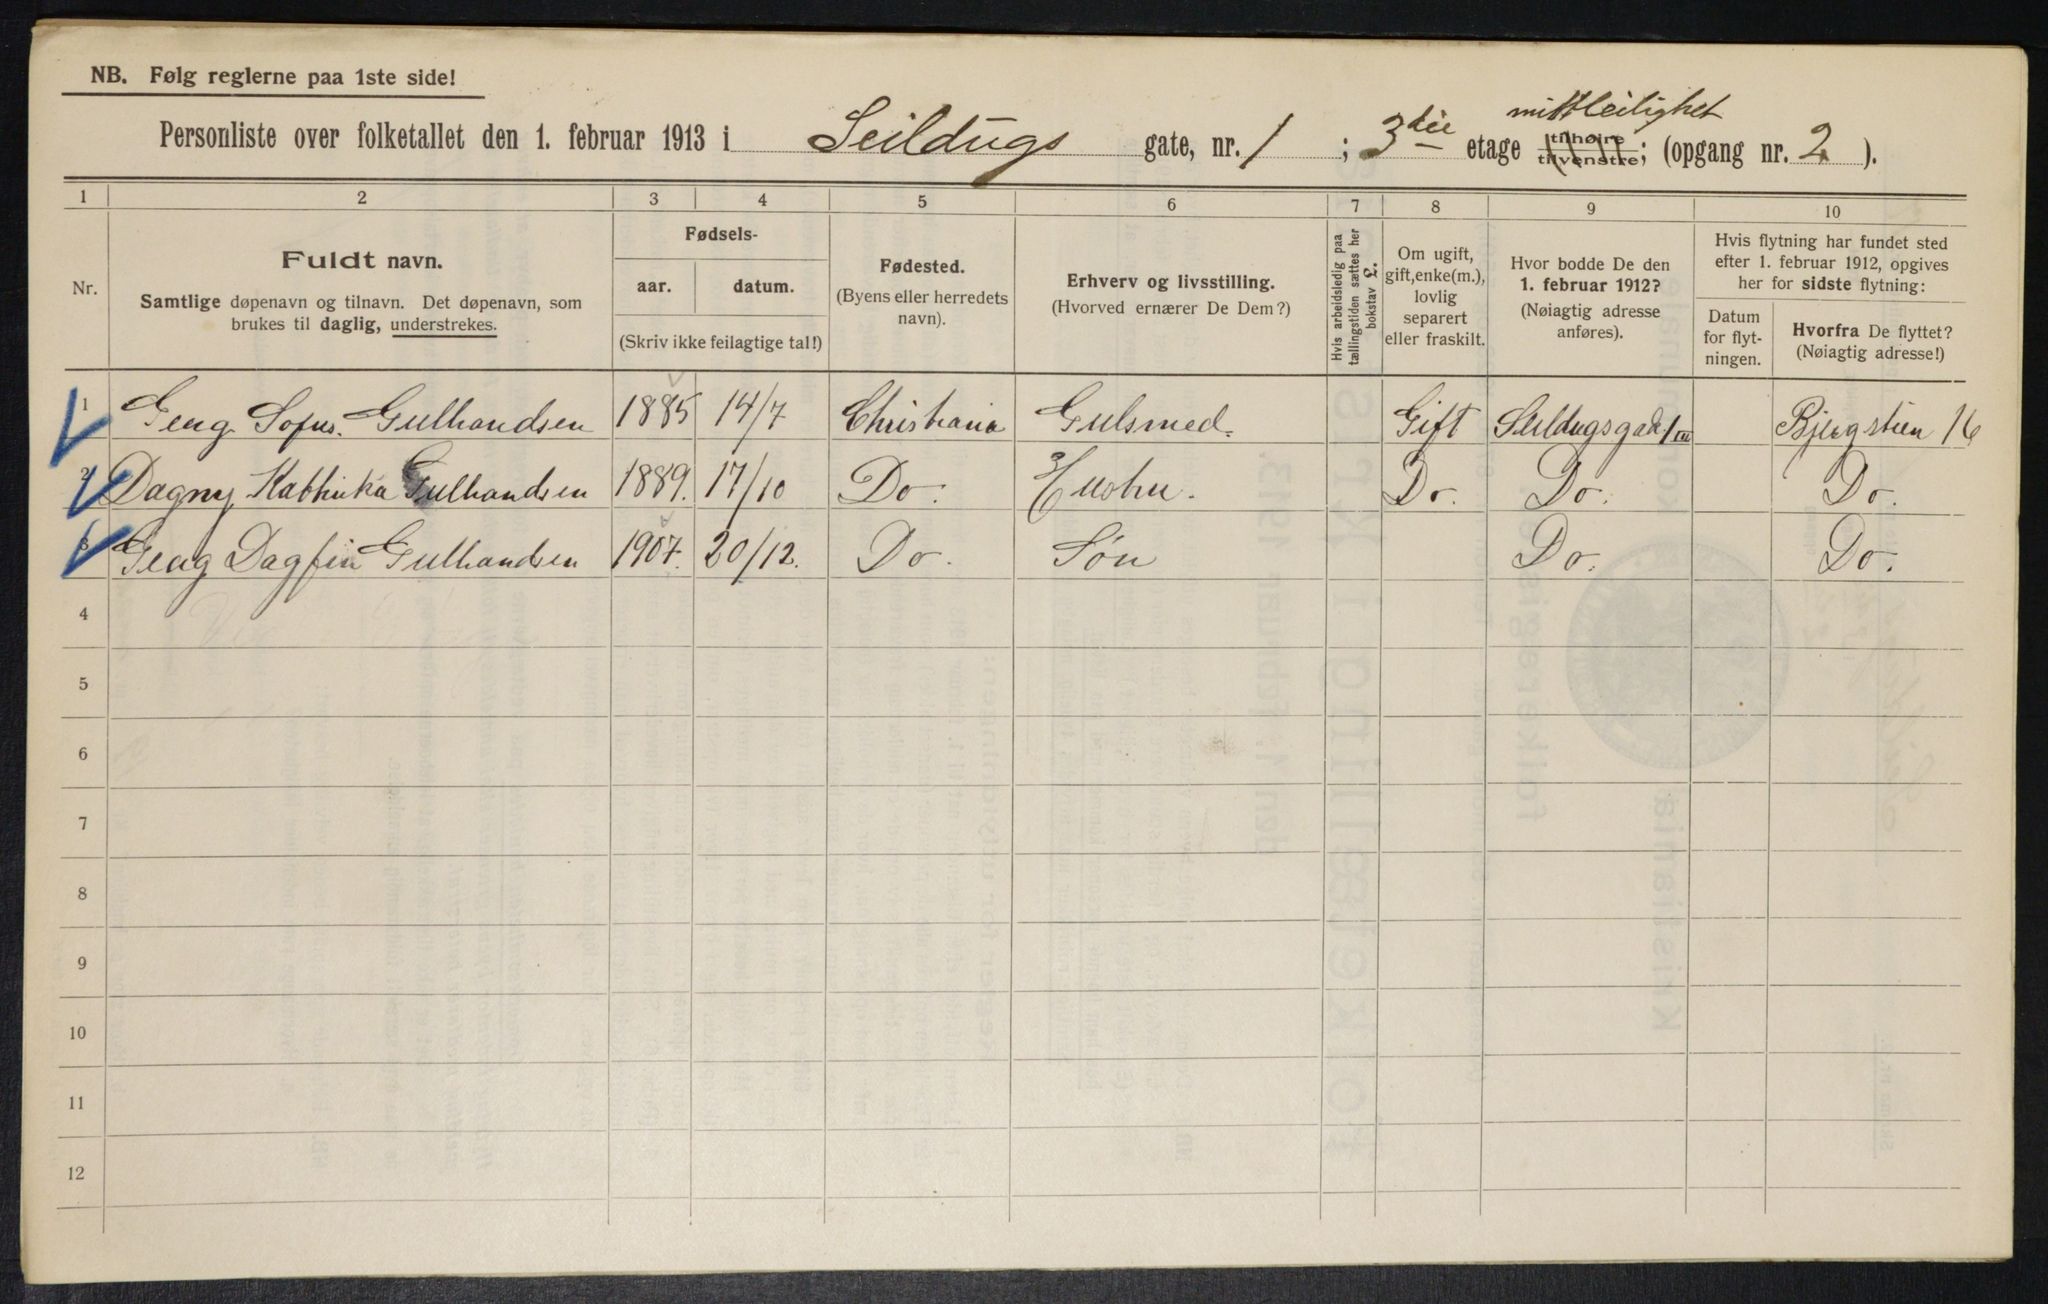 NB. Følg reglerne paa 1ste side!
Personliste over folketallet den 1. februar 1913 i Seildugs gate, nr. 1 ; 3die etage tilhøire tilvenstre; mittleilighet (opgang nr. 2 ).
1 2 3 4 5 6 7 8 9 10
Nr.
Fuldt navn.
Samtlige døpenavn og tilnavn. Det døpenavn, som
brukes til daglig, understrekes.
Fødsels-
aar. datum.
(Skriv ikke feilagtige tal!)
Fødested.
(Byens eller herredets
navn).
Erhverv og livsstilling.
(Hvorved ernærer De Dem?)
Hvis arbeidsledig paa
tællingstiden sættes her
bokstav L.
Om ugift,
gift, enke(m.),
lovlig
separert
eller fraskilt.
Hvor bodde De den
1. februar 1912?
(Nøiagtig adresse
anføres).
Hvis flytning har fundet sted
efter 1. februar 1912, opgives
her for sidste flytning:
Datum
for flyt-
ningen.
Hvorfra De flyttet?
(Nøiagtig adresse!)
1 Georg Sofus. Gulbrandsen 1885 14/7 Christiania Gulsmed. Gift Seildugsgade 1 III Bjergstien 16
2 Dagny Kathinka Gulbrandsen 1889. 17/10 Do. Hustru. Do. Do. Do.
3 Georg Dagfin Gulbrandsen 1907. 20/12. Do. Søn Do. Do.
4
5
6
7
8
9
10
11
12